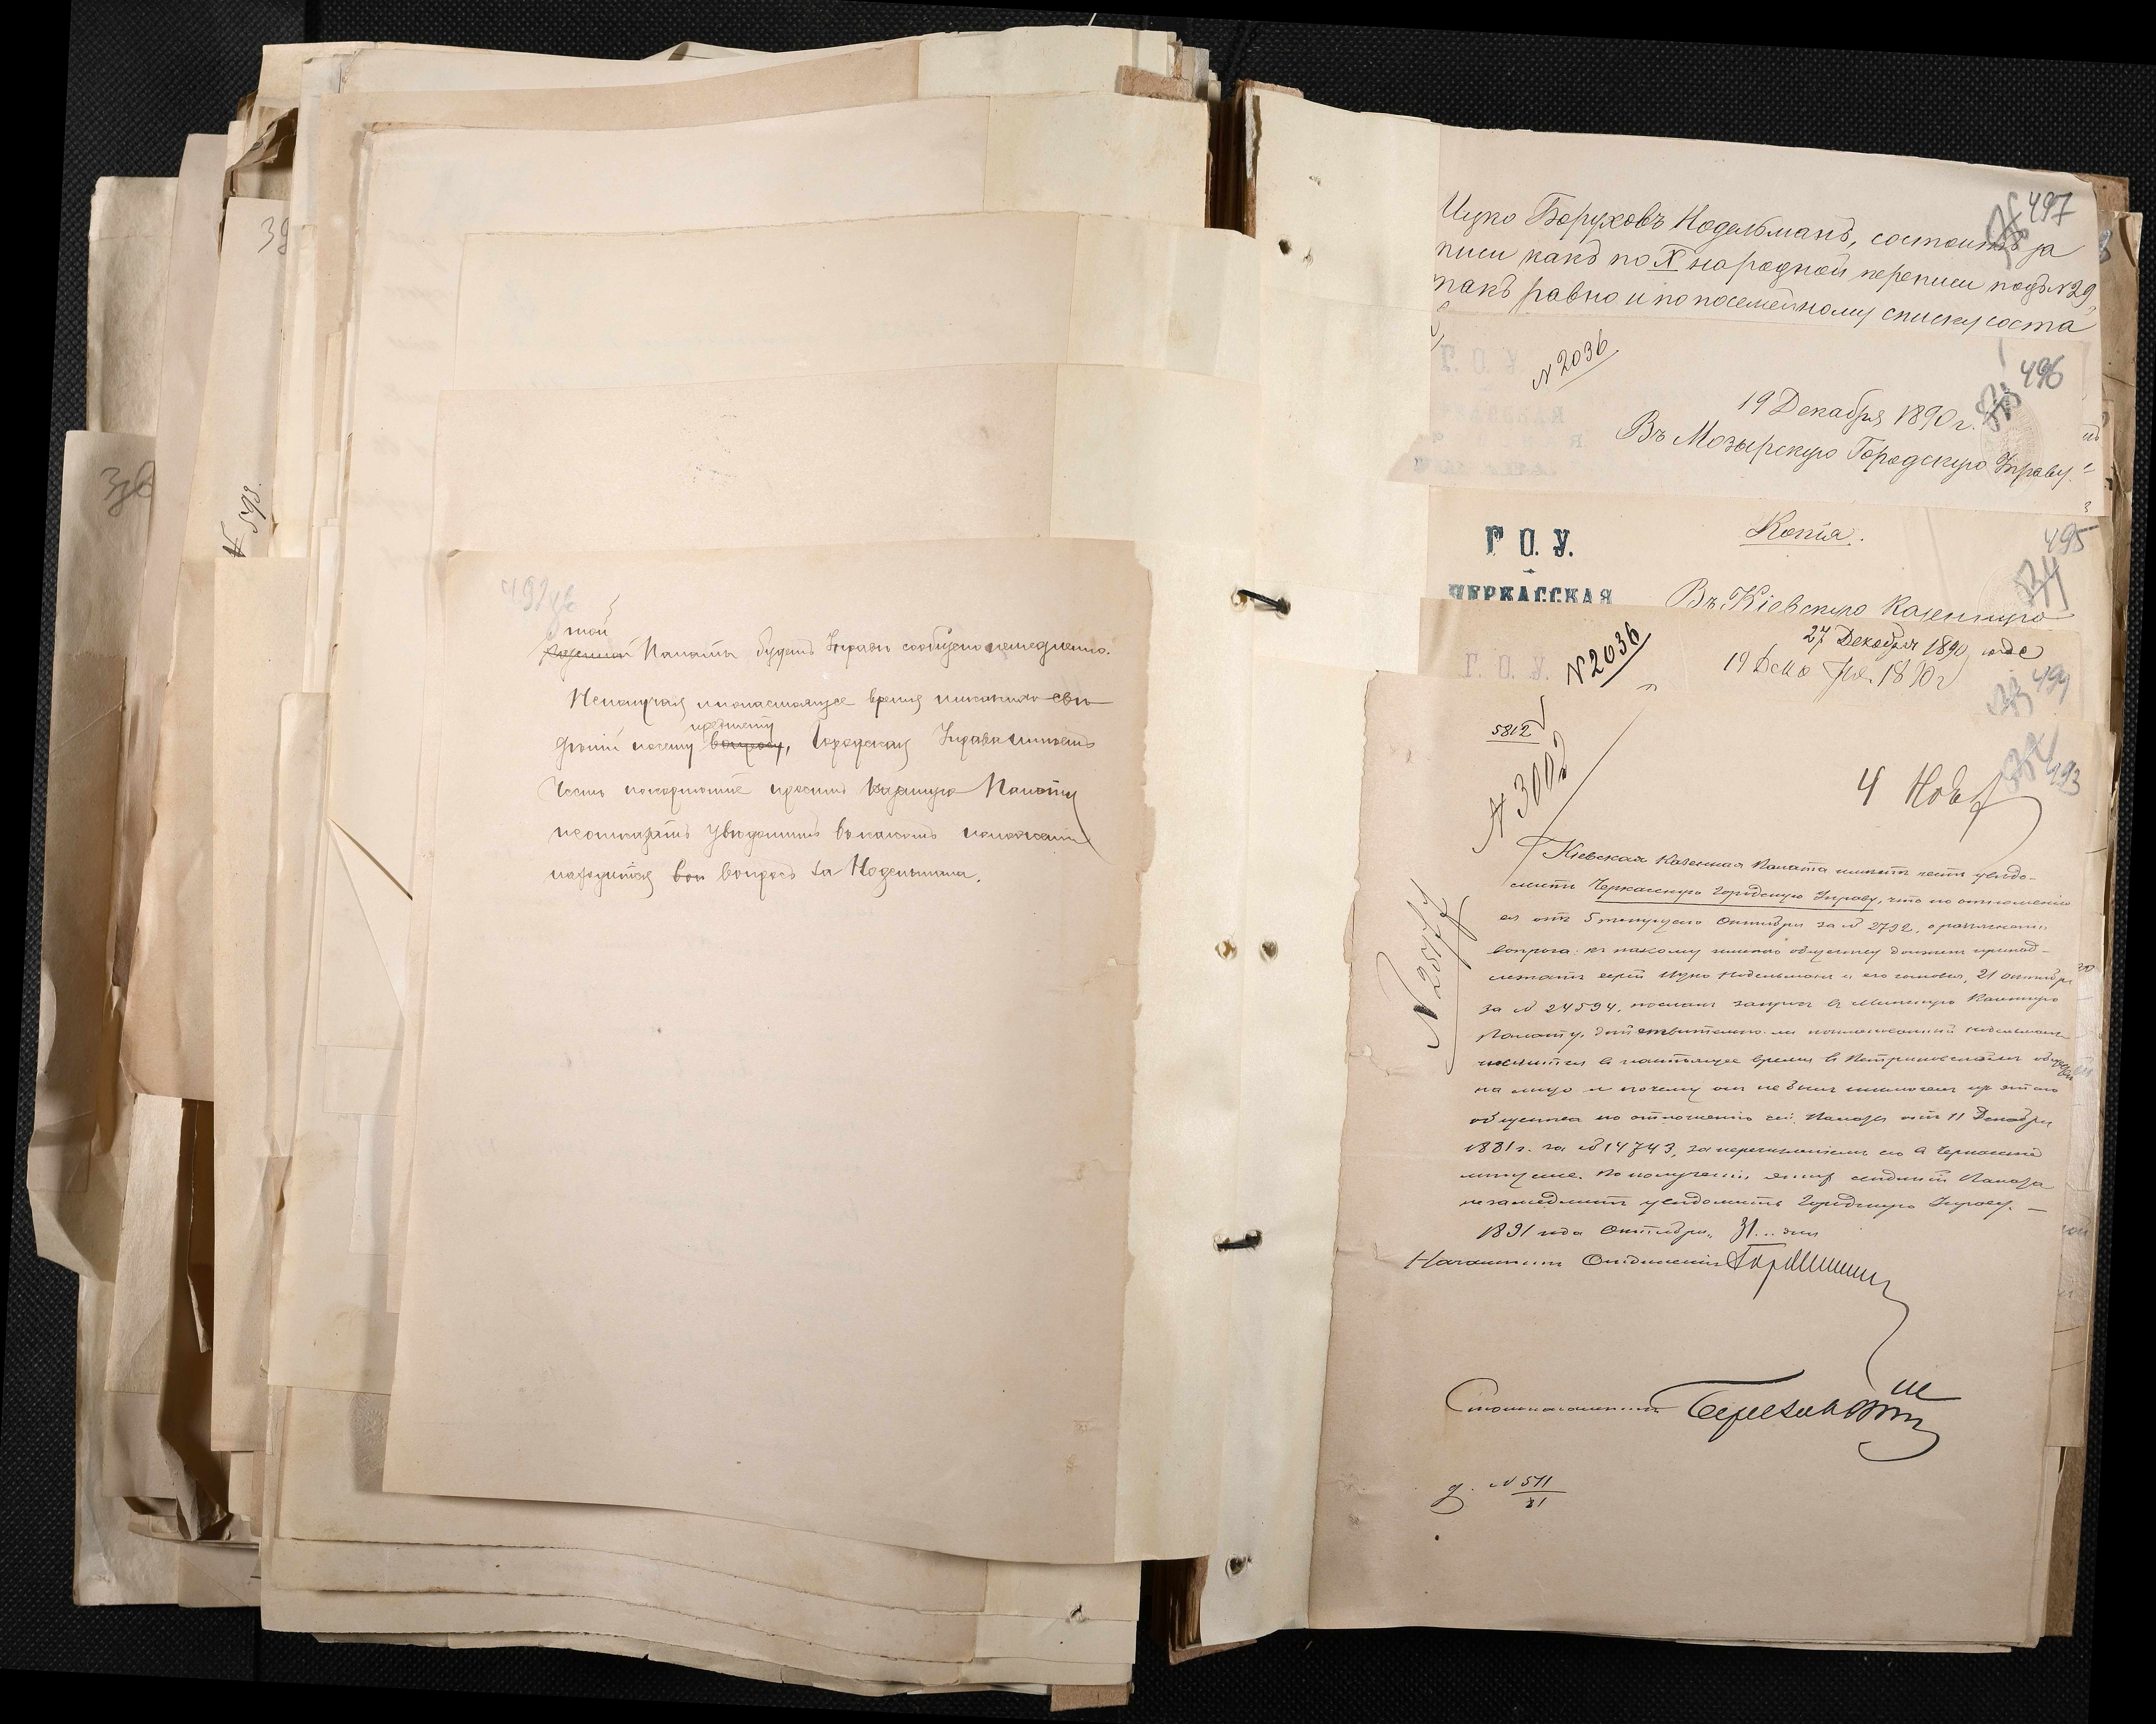 492об
той
казенной Палаты будетъ Управѣ сообщено немедленно.
Неполучая и по настоящее время никакихъ свѣ
предмету
дѣній посему вопросу, Городская Управа имѣетъ
честь покорнѣйше просить Казенную Палату
неоткажать увѣдомить въ какомъ положеніи
находится вопросъ за Нодельмана.
497
Ицко Боруховъ Нодельманъ, состоитъ за
писи какъ по X народной переписи подъ №29,
такъ равно и по посемейному списку соста
№ 2036
496
19 Декабря 1890 г.
Въ Мозырскую Городскую Управу.
495
Г. О. У.
Копія.
ЧЕРКАССКАЯ
Въ Кіевскую Казенную
27 Декабря 1890 года
19 Дек 1890 г
Г. О. У.
№ 2036
494
5812
493
№ 3002
4 Нояб
№ 25177
Кіевская Казенная Палата имѣетъ честь увѣдо-
мить Черкасскую Городскую Управу, что по отношенію
ея отъ 5 текущаго Октября за № 2792, о разъясненіи
вопроса: къ какому именно обществу долженъ принад-
лежать еврей Ицко Нодельманъ и его сыновья, 21 октября
за № 24594, посланъ запросъ въ Минскую Казенную
Палату, дѣйствительно ли поименованный Нодельманъ
числится въ настоящее время въ Петриковскомъ обществѣ
на лицо и почему онъ не былъ исключенъ изъ этого
общества по отношенію сей Палаты отъ 11 Декабря
1881 г. за № 14743, за перечисленіемъ его въ Черкасскіе
мѣщане. По полученіи этихъ свѣдѣній Палата
незамедлитъ увѣдомить Городскую Управу. —
1891 года Октября 31 дня
Начальникъ Отдѣленія
Столоначальникъ
д. № 511/81